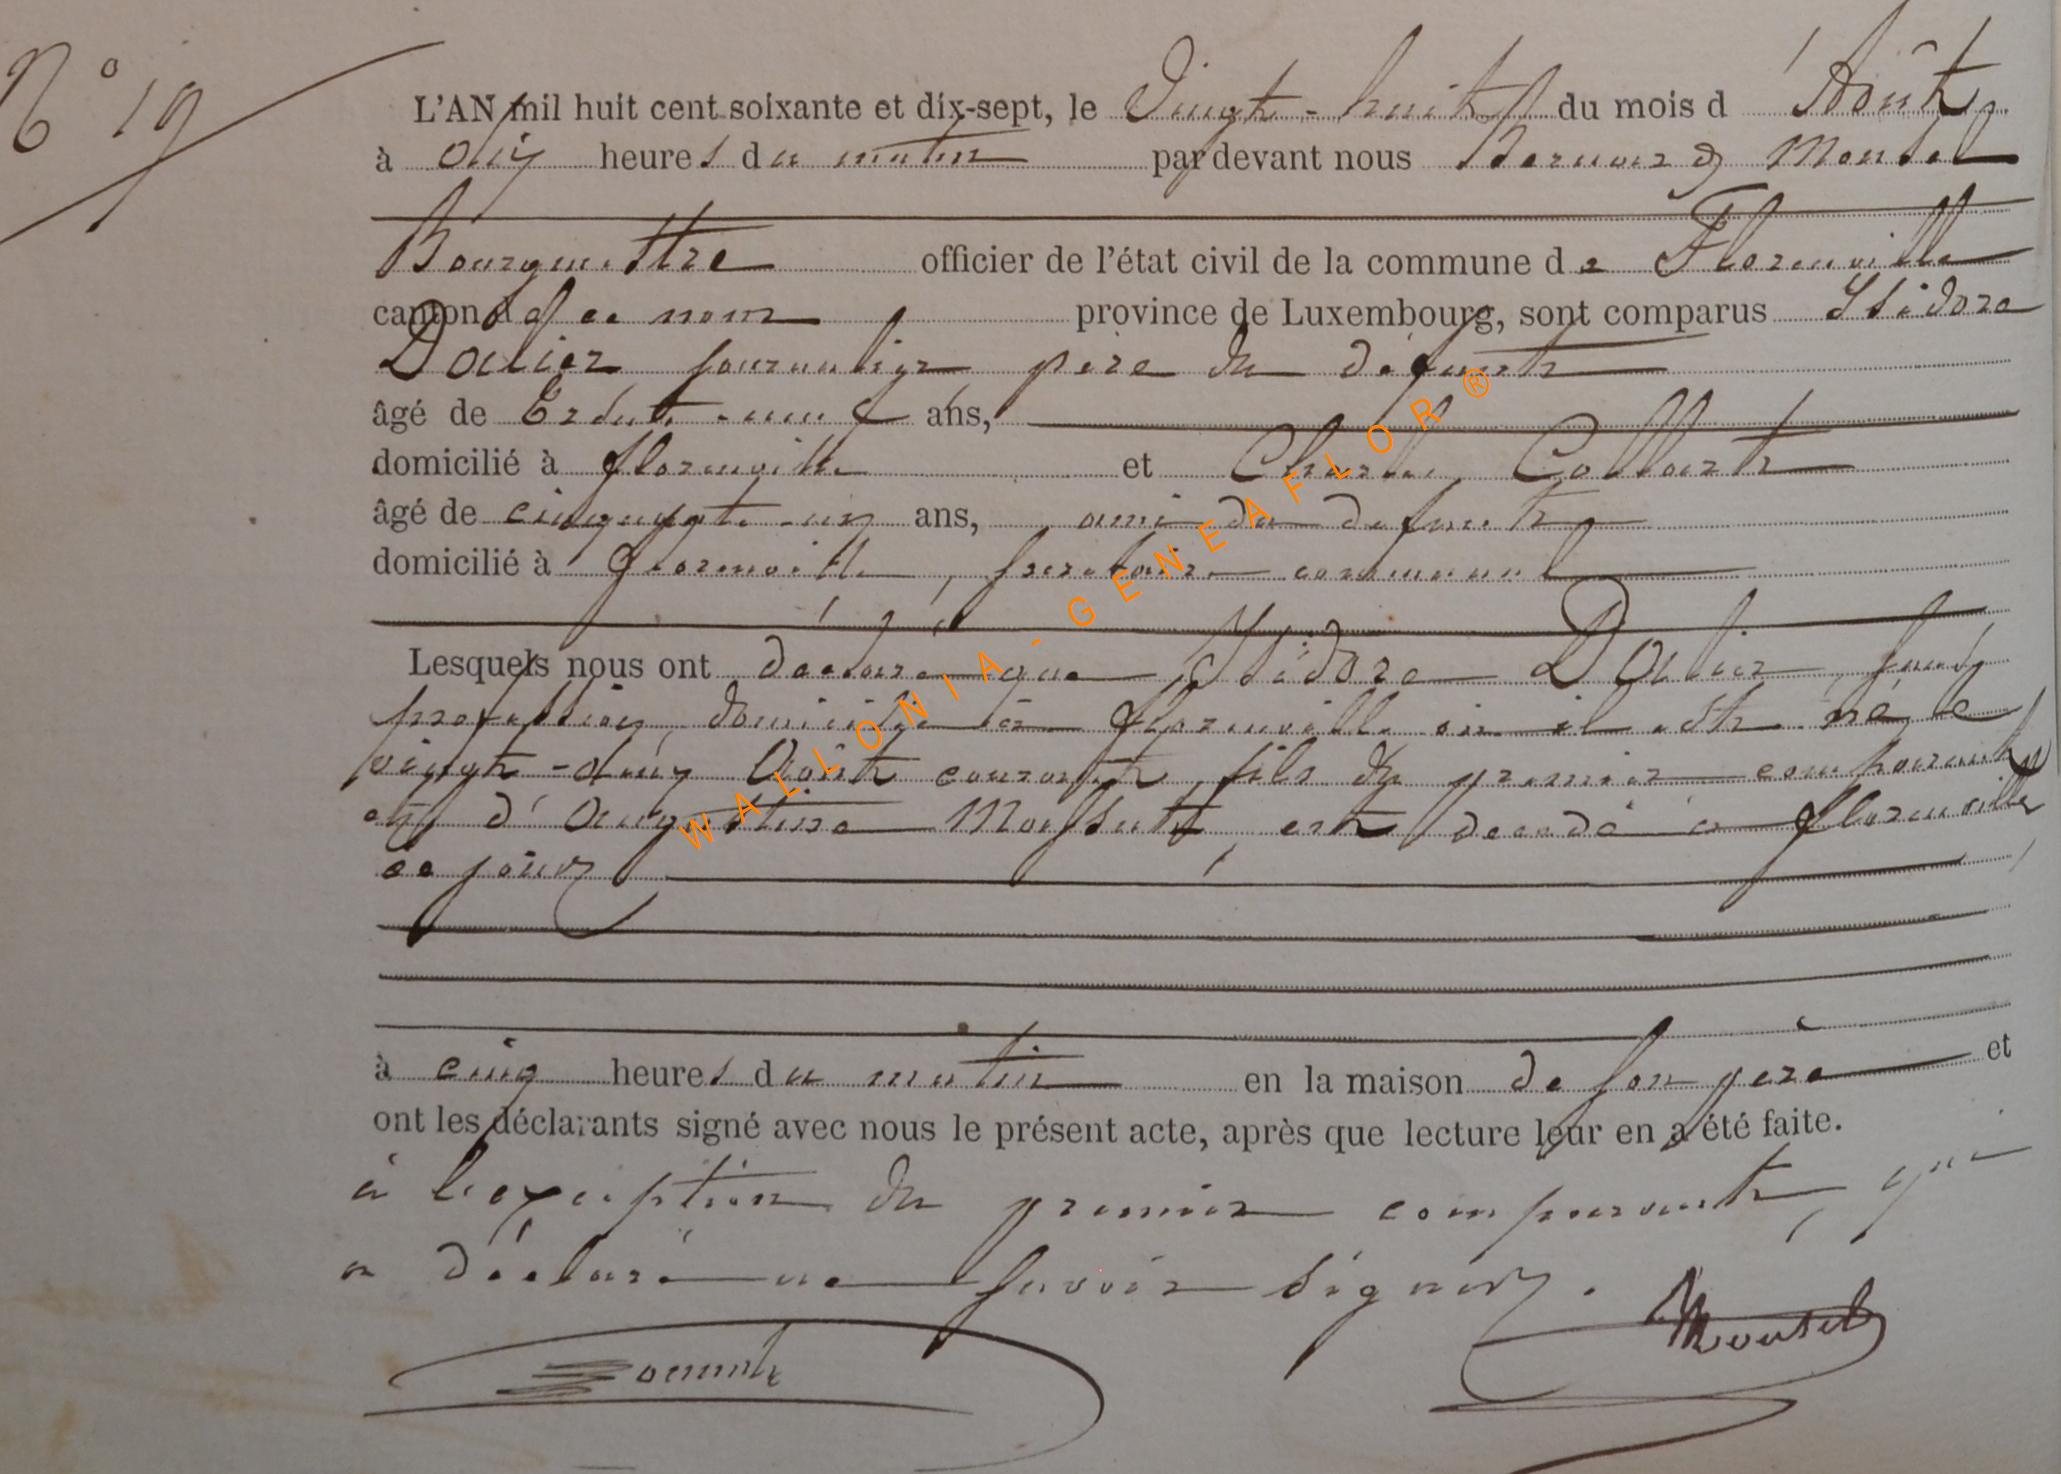 N° 19
L'AN mil huit cent soixante et dix-sept, le Vingt-huit du mois d'Août
à onze heures du matin par devant nous Bernard Moutel
Bourgmestre officier de l'état civil de la commune de Florenville
canton de ce nom province de Luxembourg, sont comparus Isidore
Dalier journalier père du défunt
âgé de trente-neuf ans,
domicilié à florenville et Charles Collart
âgé de cinquante-un ans, ami du defunt
domicilié à florenville, secretaire communal
Lesquels nous ont déclaré que Isidore Dalier, sans
profession, domicilié à florenville où il est né le
vingt-deux Août courant, fils du premier comparant
et d'Augustine est décédé à florenville
ce jour
à cinq heures du matin en la maison de son père et
ont les déclarants signé avec nous le présent acte, après que lecture leur en a été faite.
à l'exception du premier comparant, qui
a déclaré ne savoir signer.
Moutel
WALLONIA-GENEAFLOR®